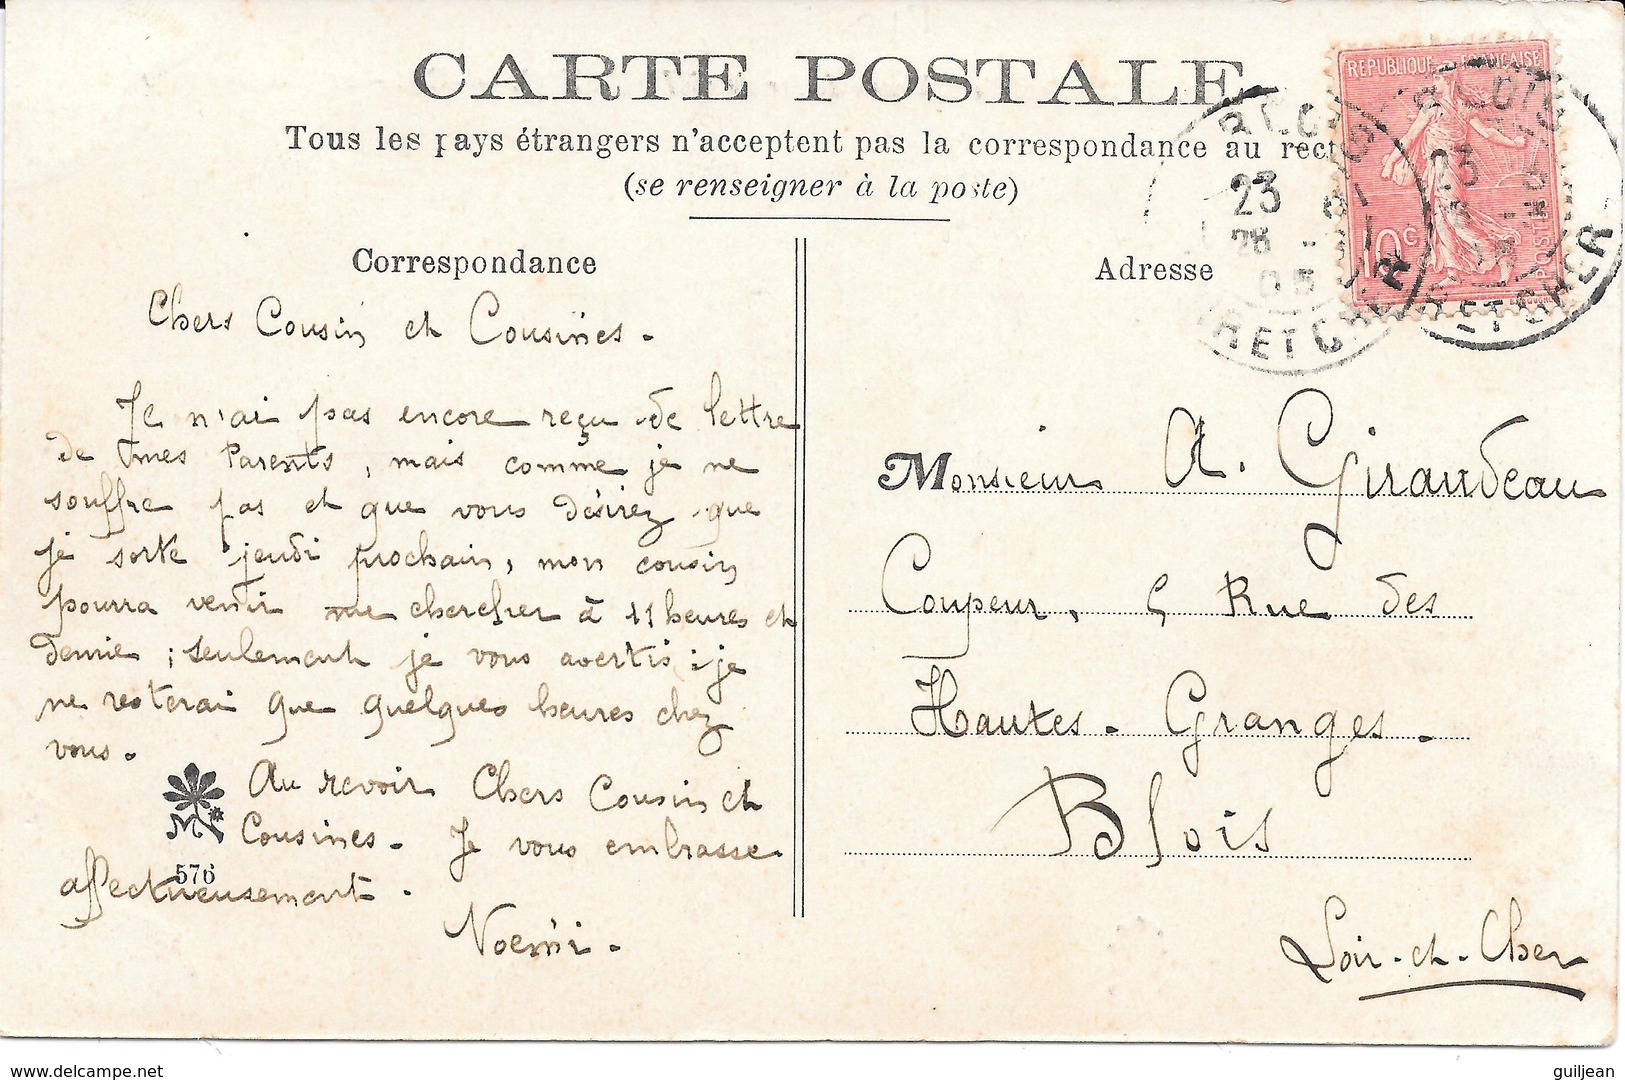 CARTE POSTALE
Tous les pays étrangers n'acceptent pas la correspondance au rect
(se renseigner à la poste)
Correspondance
Chers Cousin et Cousines.
Je n'ai pas encore reçu de lettre
de mes Parents, mais comme je ne
souffre pas et que vous désirez que
je sorte jeudi prochain, mon cousin
pourra venir me chercher à 11 heures et
demie ; seulement je vous avertis : je
ne resterai que quelques heures chez
vous.
Au revoir Chers Cousin et
Cousines. Je vous embrasse
affectueusement.
Noémi.
M
576
Adresse
REPUBLIQUE FRANÇAISE
10c
POSTES
BLOIS
23
LOIR-ET-CHER
BLOIS
23
LOIR-ET-CHER
Monsieur A. Giraudeau
Coupeur, 5 Rue des
Hautes-Granges.
Blois
Loir-et-Cher
www.delcampe.net
guiljean